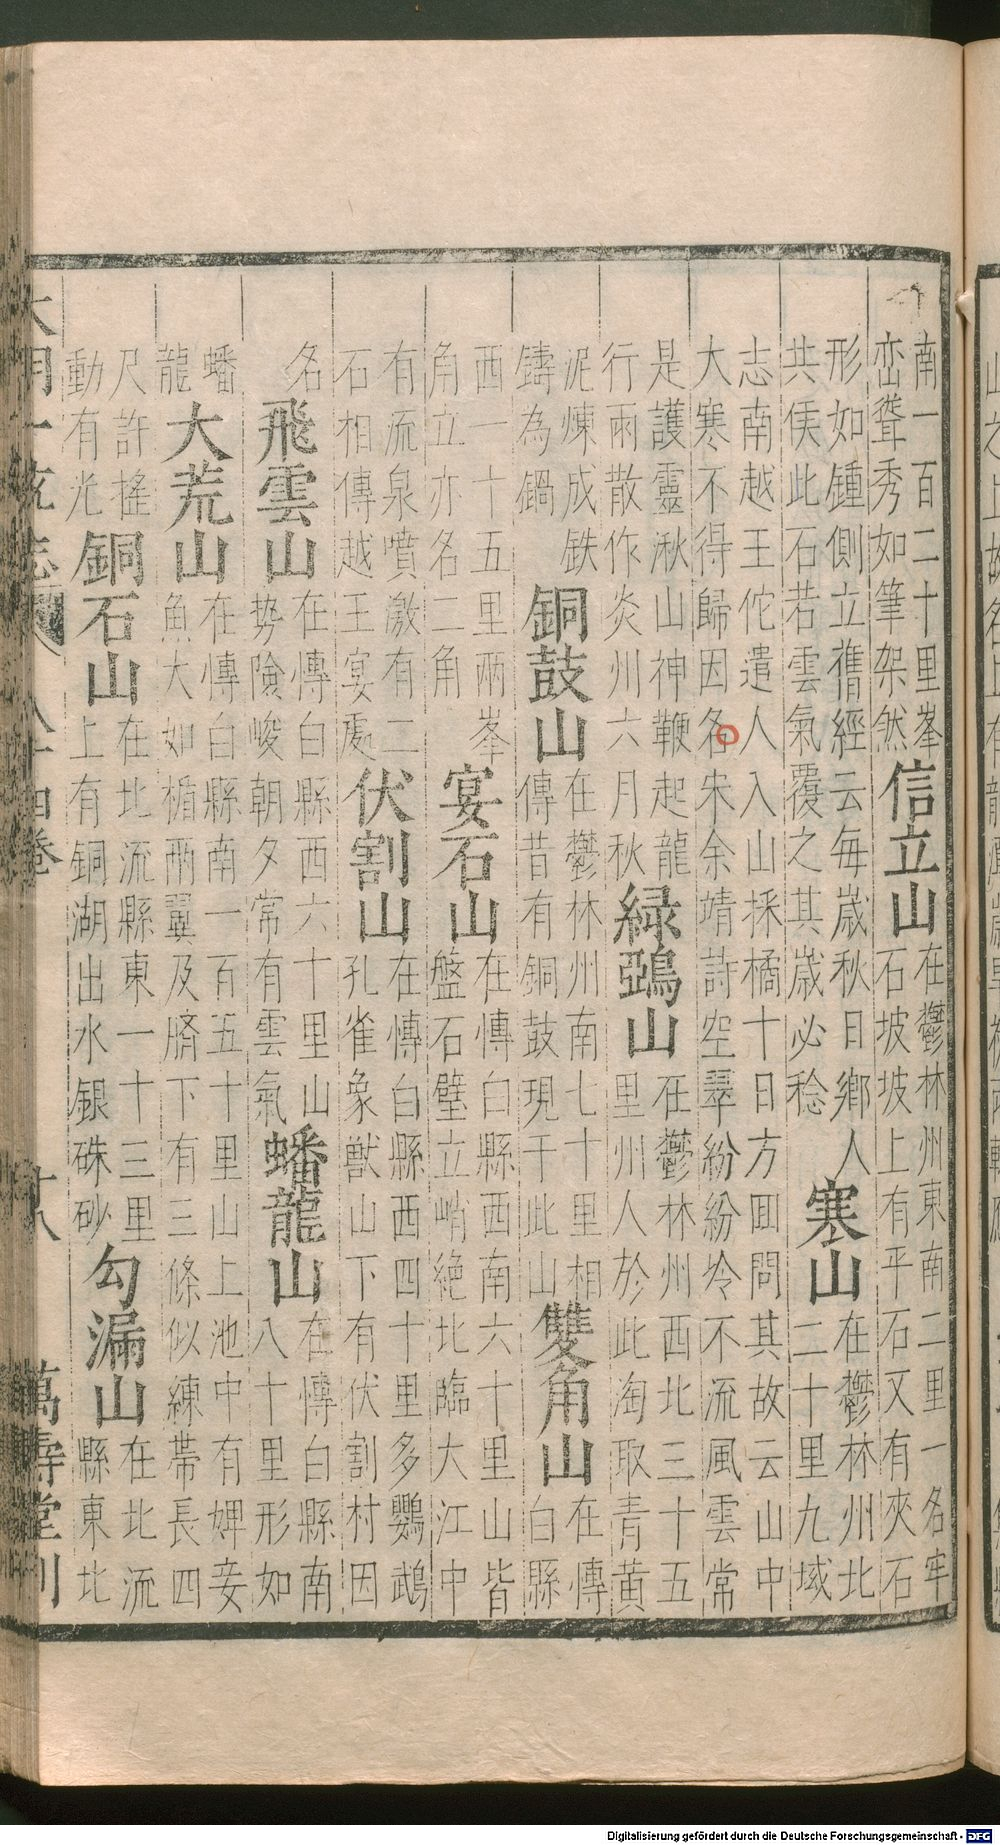 南一百二十里峯
巒聳秀如筆架然
信立山
在鬱林州東南二里一名牢
石坡坡上有平石又有夾石
形如鍾側立舊經云每歲秋日鄉人
共俟此石若雲氣覆之其歲必稔
寒山
在鬱林州北
二十里九域
志南越王佗遣人入山採橘十日方囬問其故云山中
大寒不得歸因名宋余靖詩空翠紛紛冷不流風雲常
是護靈湫山神鞭起龍
行雨散作炎州六月秋
緑鵶山
在鬱林州西北三十五
里州人於此淘取青黃
泥煉成鉄
鑄為鍋
銅鼓山
在鬱林州南七十里相
傳昔有銅鼓現于此山
雙角山
在愽
白縣
西一十五里兩峯
角立亦名二角
宴石山
在愽白縣西南六十里山皆
盤石壁立峭絶北臨大江中
有流泉噴激有二
石相傳越王宴處
伏割山
在愽白縣西四十里多鸚鵡
孔雀象獸山下有伏割村因
名
飛雲山
在愽白縣西六十里山
勢險峻朝夕常有雲氣
蟠龍山
在愽白縣南
八十里形如
蟠
龍
大荒山
在愽白縣南一百五十里山上池中有婢妾
魚大如楯兩翼及臍下有三條似練帯長四
尺許搖
動有光
銅石山
在北流縣東一十三里
上有銅湖出水銀硃砂
勾漏山
在北流
縣東北
大明一統志 八十四卷 十八 萬壽堂刊
Digitalisierung gefördert durch die Deutsche Forschungsgemeinschaft - DFG